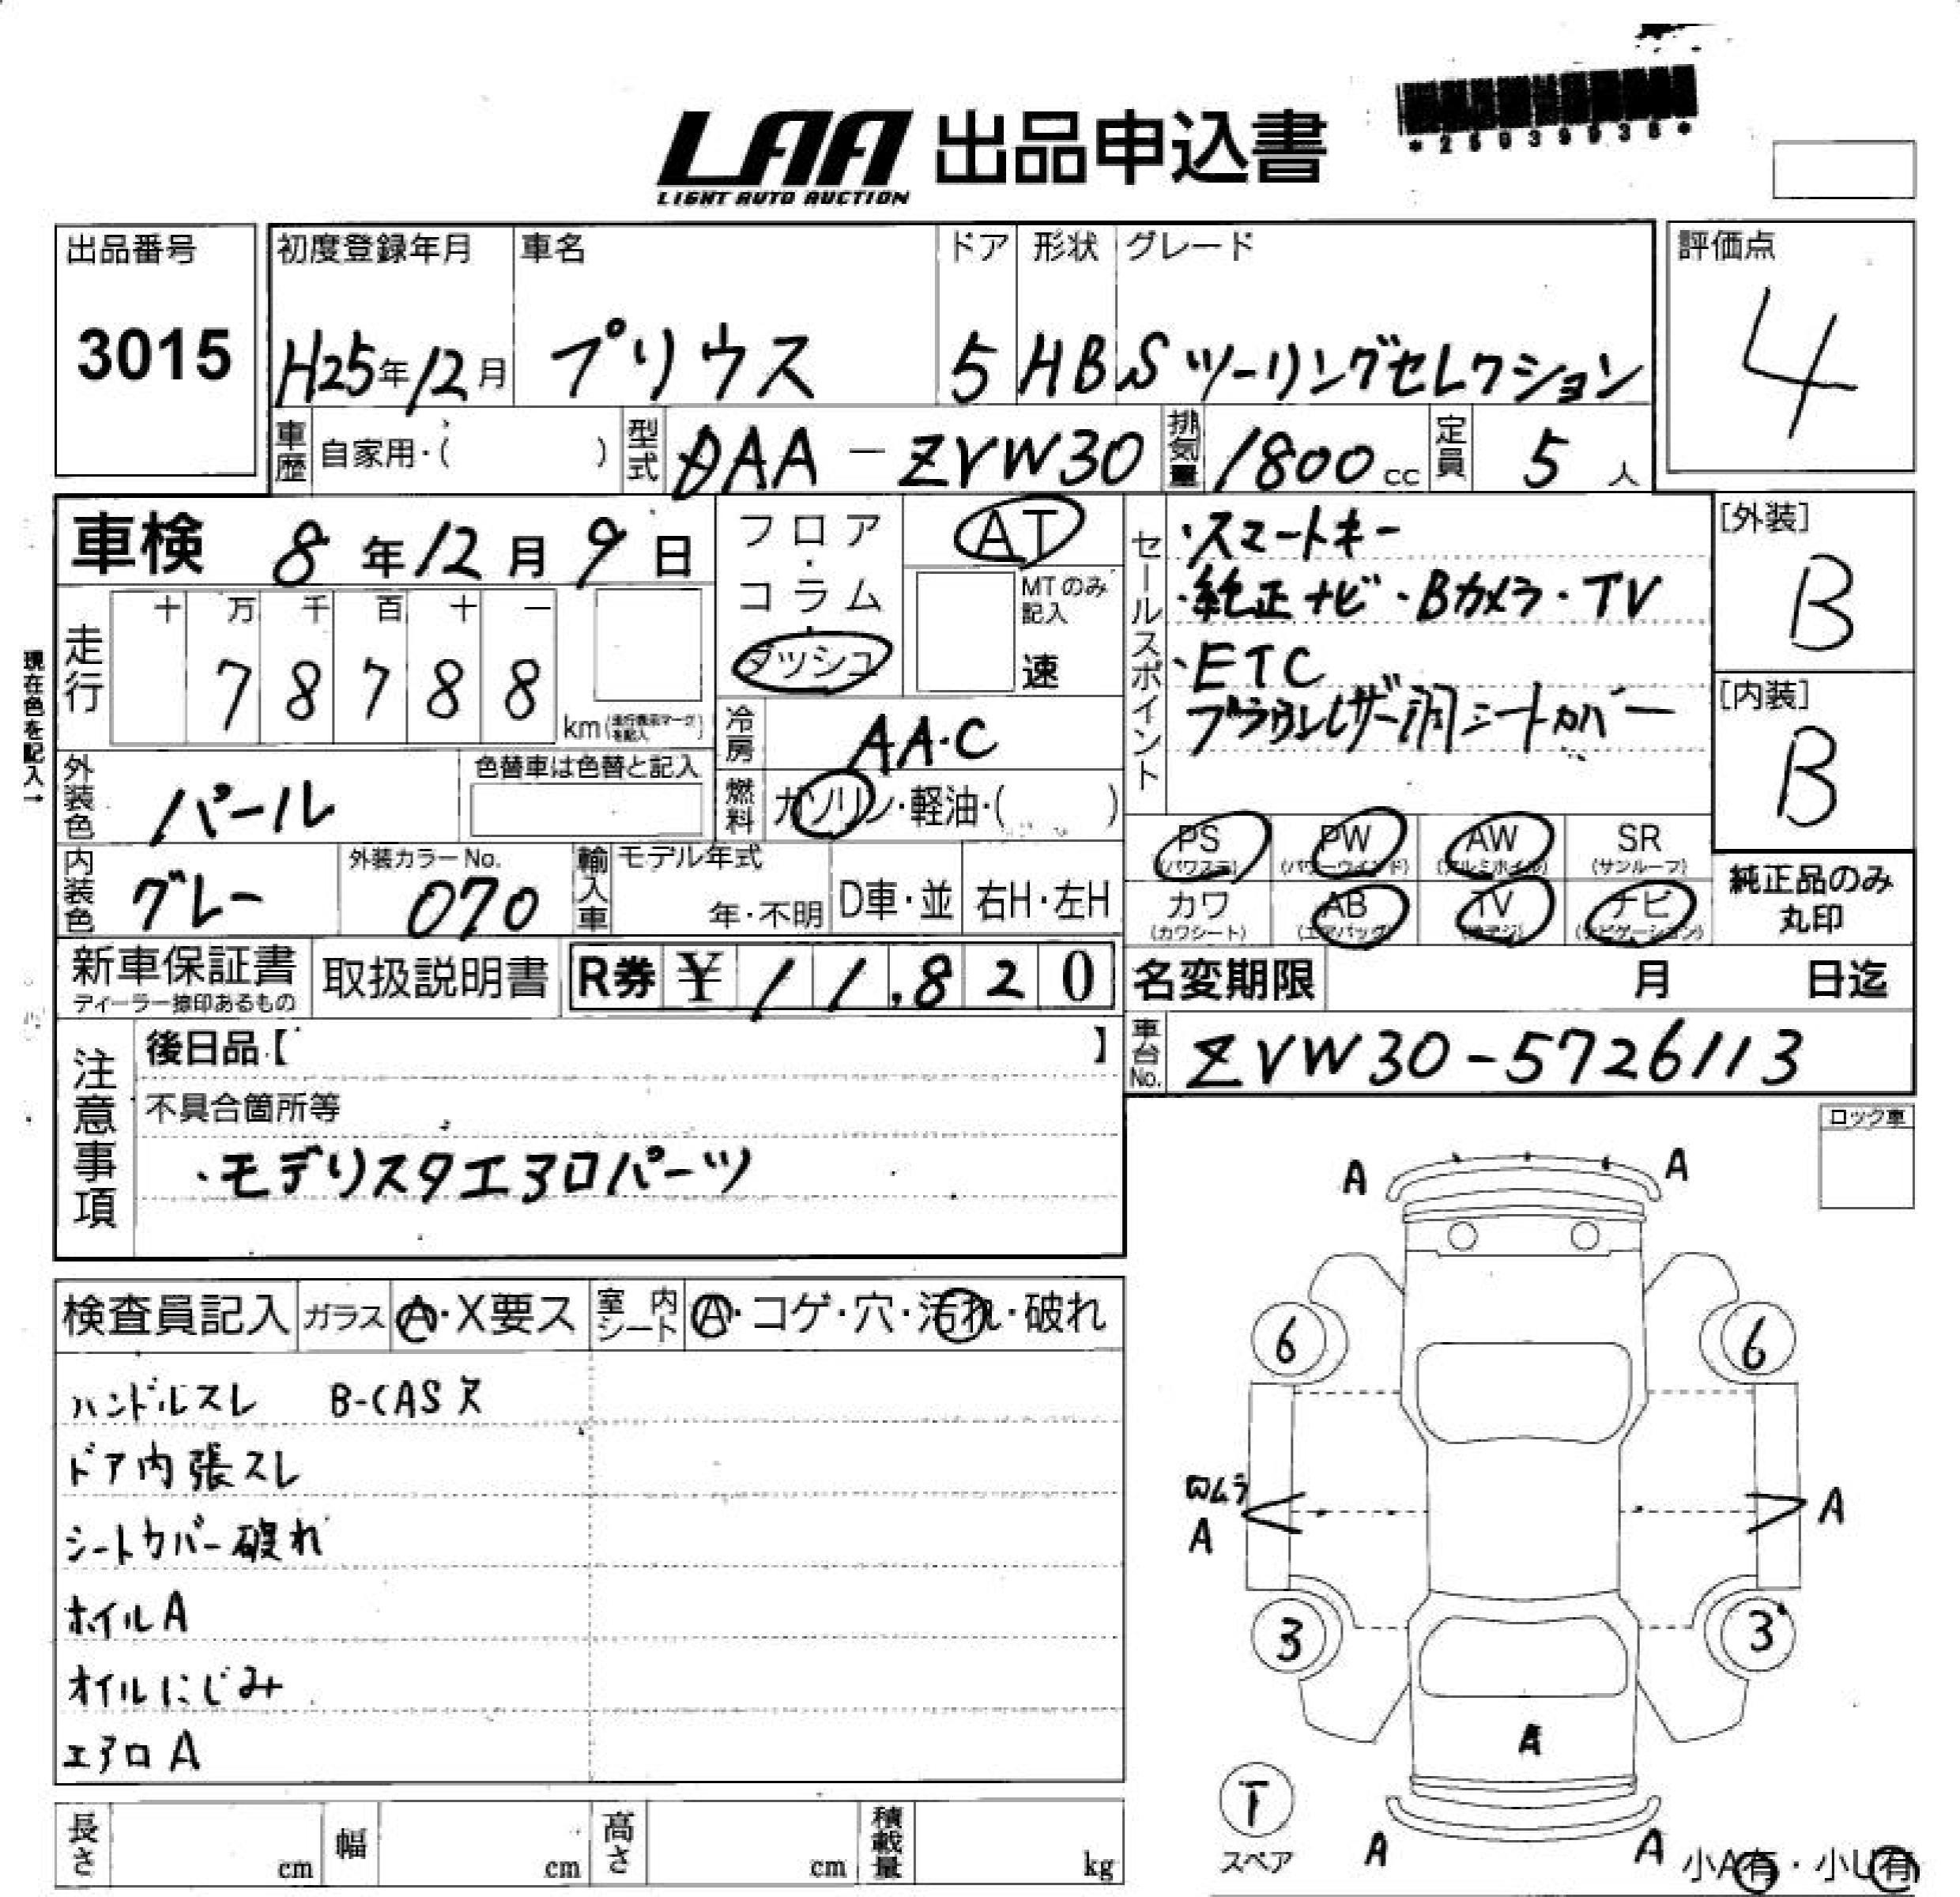 LAA 出品申込書
LIGHT AUTO AUCTION
出品番号
3015
初度登録年月
H25年12月
車名
プリウス
ドア
5
形状
HB
グレード
Sツーリングセレクション
評価点
4
車歴 自家用・( )
型式 DAA-ZVW30
排気量 1800cc
定員 5人
車検 8年12月9日
フロア・コラム・ダッシュ
AT
MTのみ記入
速
現在色を記入→
走行
十 万 千 百 十 一
7 8 7 8 8
km
冷房 AA・C
燃料 ガソリン・軽油・( )
外装色 パール
色替車は色替と記入
内装色 グレー
外装カラーNo.
070
輸入車 モデル年式
年・不明
D車・並
右H・左H
セールスポイント
・スマートキー
・純正ナビ・Bカメラ・TV
・ETC
ブラウンレザー調シートカバー
[外装]
B
[内装]
B
PS (パワステ)
PW (パワーウインド)
AW (アルミホイル)
SR (サンルーフ)
カワ (カワシート)
AB (エアバッグ)
TV (地デジ)
ナビ (ナビゲーション)
純正品のみ
丸印
新車保証書
取扱説明書
R券 ¥ 11,820
名変期限 月 日迄
車台No. ZVW30-5726113
注意事項
後日品【 】
不具合箇所等
・モデリスタエアロパーツ
ロック車
検査員記入
ガラス A・X要ス
室内シート A・コゲ・穴・汚れ・破れ
ハンドルスレ B-CAS欠
ドア内張スレ
シートカバー破れ
ホイルA
オイルにじみ
エアロA
A A
6 6
ムラ
A A
3 3
A
T
スペア
A A
小A有・小U有
長さ cm
幅 cm
高さ cm
積載量 kg